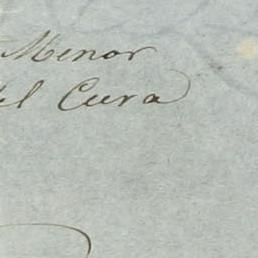 Menor
del Cura